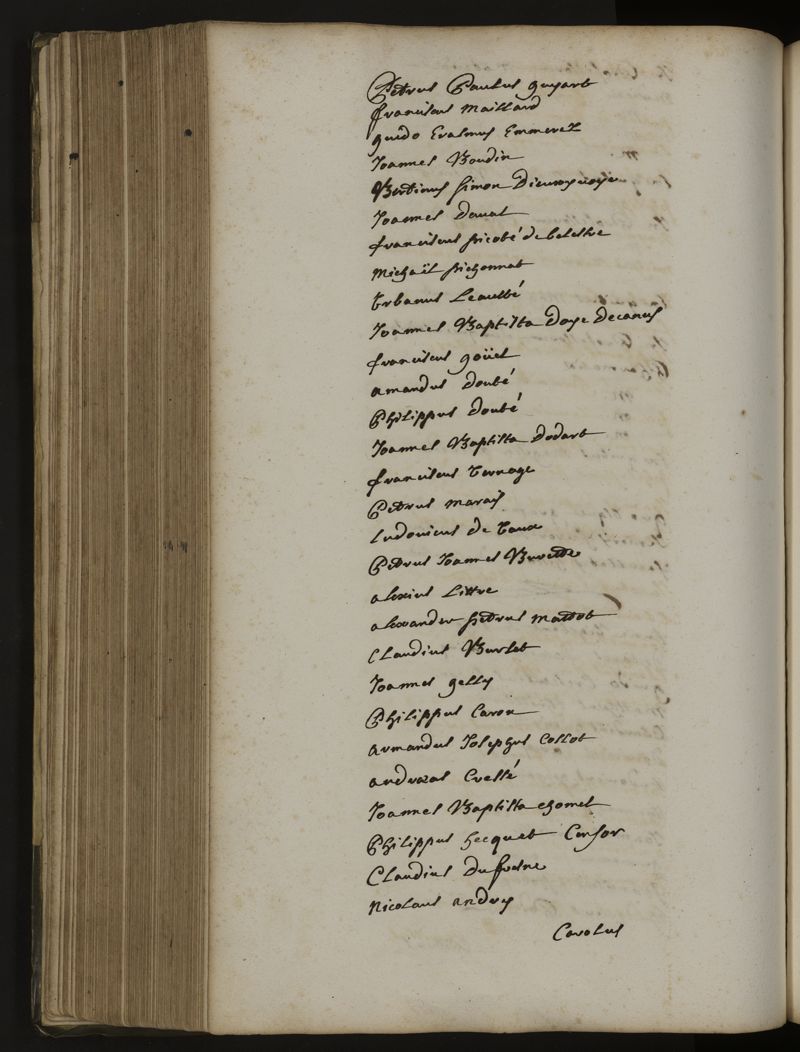 Petrus Paulus guyart
franciscus Maillard
guido Erasmus Emmerez
Joannes Boudin
Bertinus simon Dieuxyvoye
Joannes Douat
franciscus picoté de belestre
Michaël pichonnat
Urbanus Leaulté
Joannes Baptista doye Decanus
franciscus goüel
amandus Douté
Philippus Douté
Joannes Baptista dodart
franciscus Vernage
Petrus marais
Ludovicus de Vaux
Petrus Joannes Burette
alexius Littre
alexander petrus mattot
Claudius Burlet
Joannes gelly
Philippus Caron
armandus Josephus Collot
andraeas Cressé
Joannes Baptista chomel
Philippus hecquet Censor
Claudius Dufresne
Nicolaus andry
Carolus